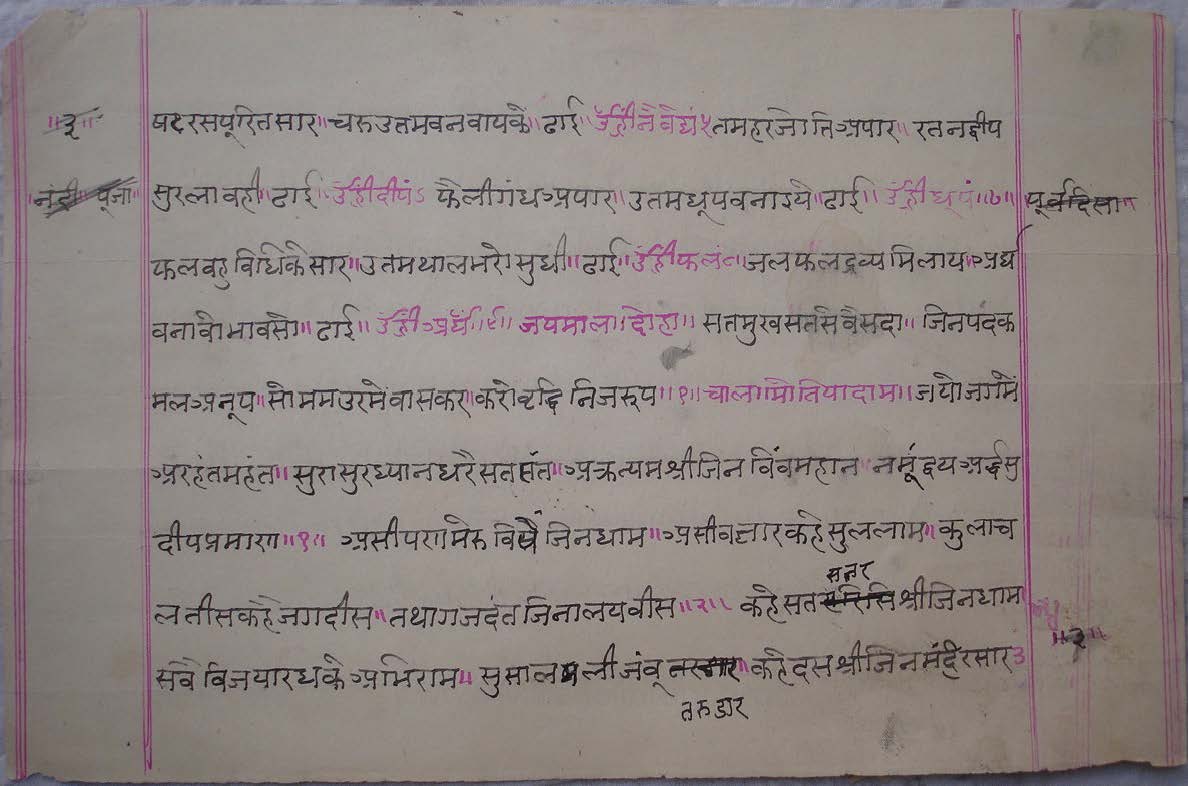 ॥३॥
षटरसपूरितसार॥चरुउतमवनवायके॥ढाई॥उँह्रींनैवेद्यं५तमहरजोतिअपार॥रतनदीप
नंदी पूजा
सुरलावही॥ढाई॥उँह्रींदीपं६ फैलीगंधअपार॥उतमधूपवनाइये॥ढाई॥उँह्रींधूपं॥७॥
पूर्वदिसा॥
फलवहुविधिकेसार॥उतमथालभरोसुधी॥ढाई॥उँह्रींफलं८जलफलद्रव्यमिलाय॥अर्घ
वनावोभावसो॥ढाई॥उँह्रींअर्घं॥९॥जयमाला॥दोहा॥सतमुखसतसेवैसदा॥जिनपदक
मलअनूप॥सोममउरमेंवासकर॥करोवृद्धिनिजरूप॥१॥चाल॥मोतियादाम॥जयोजगमें
अरहंतमहंत॥सुरासुरध्यानधरैसतसंत॥अक्रत्यमश्रीजिनविंवमहान॥नमूंद्वयअर्द्धसु
दीपप्रमाण॥१॥असीपणमेरुविषैंजिनधाम॥असीवक्षारकहेसुललाम॥कुलाच
सत्तर
लतीसकहेजगदीस॥तथागजदंतजिनालयवीस॥२॥कहेसत श्रीजिनधाम
सवैविजयारधकेअभिराम॥सुसालमलीजंवू कहेदसश्रीजिनमंदिरसार३
॥३॥
तरुडार